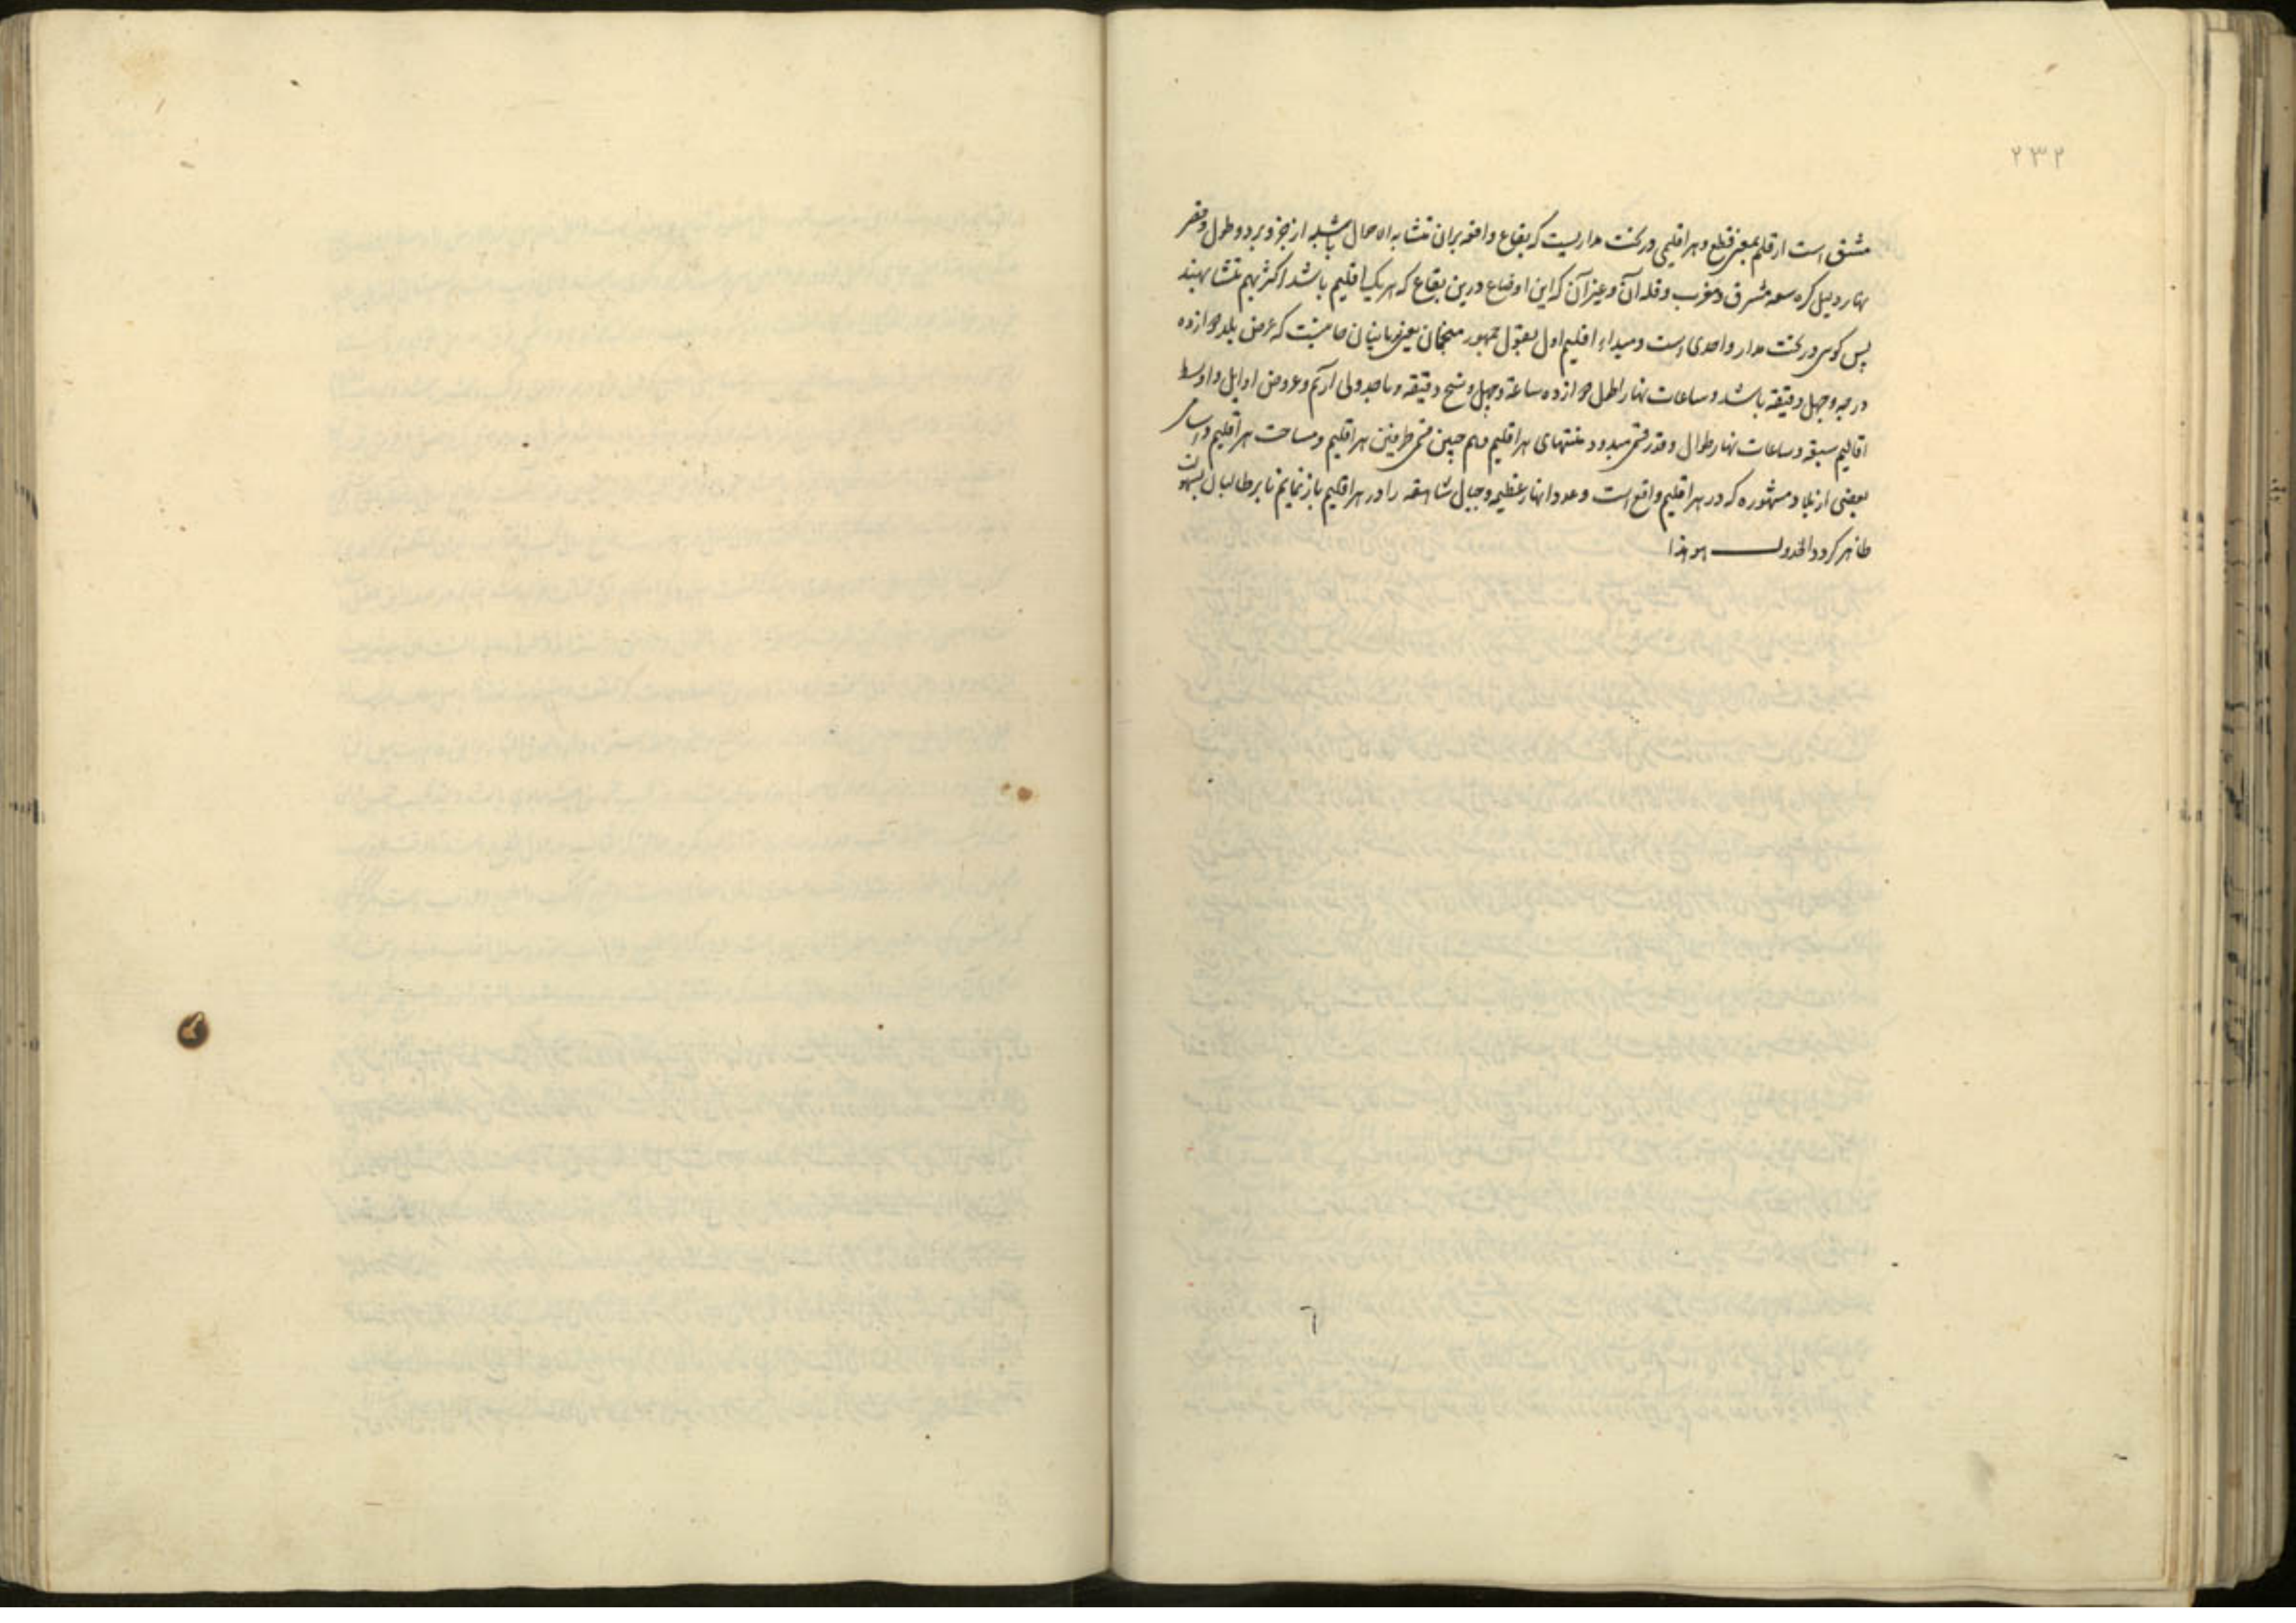 ۲۳۲
مشتق است از قلم بمعنی قطع و هر اقلیمی در تحت مداریست که بقاع واقعه بران متشابه الاحوال باشند از حر و برد و طول و قصر
نهار و لیل کره سعه مشرق و مغرب و قله آن و غیر آن که این اوضاع درین بقاع که هر یک اقلیم باشد اکثر بهم متشابهند
پس کوئی در تحت مدار واحدی است و مبداء اقلیم اول بقول جمهور منجمان یعنی که عرض بلد دوازده
درجه و چهل دقیقه باشد و ساعات نهار اطول دوازده ساعة و چهل و پنج دقیقه و ما جدولی آریم و عروض اوایل و اوسط
اقالیم سبعه و ساعات نهار طوال و قدر منتهای هر اقلیم و هم چنین طرفین هر اقلیم و مساحت هر اقلیم و اسامی
بعضی از بلاد مشهوره که در هر اقلیم واقع است و عدد انهار عظیمه و جبال شاهقه را در هر اقلیم باز نمایم تا بر طالبان بسهولت
ظاهر کردد الجدول هو هذا